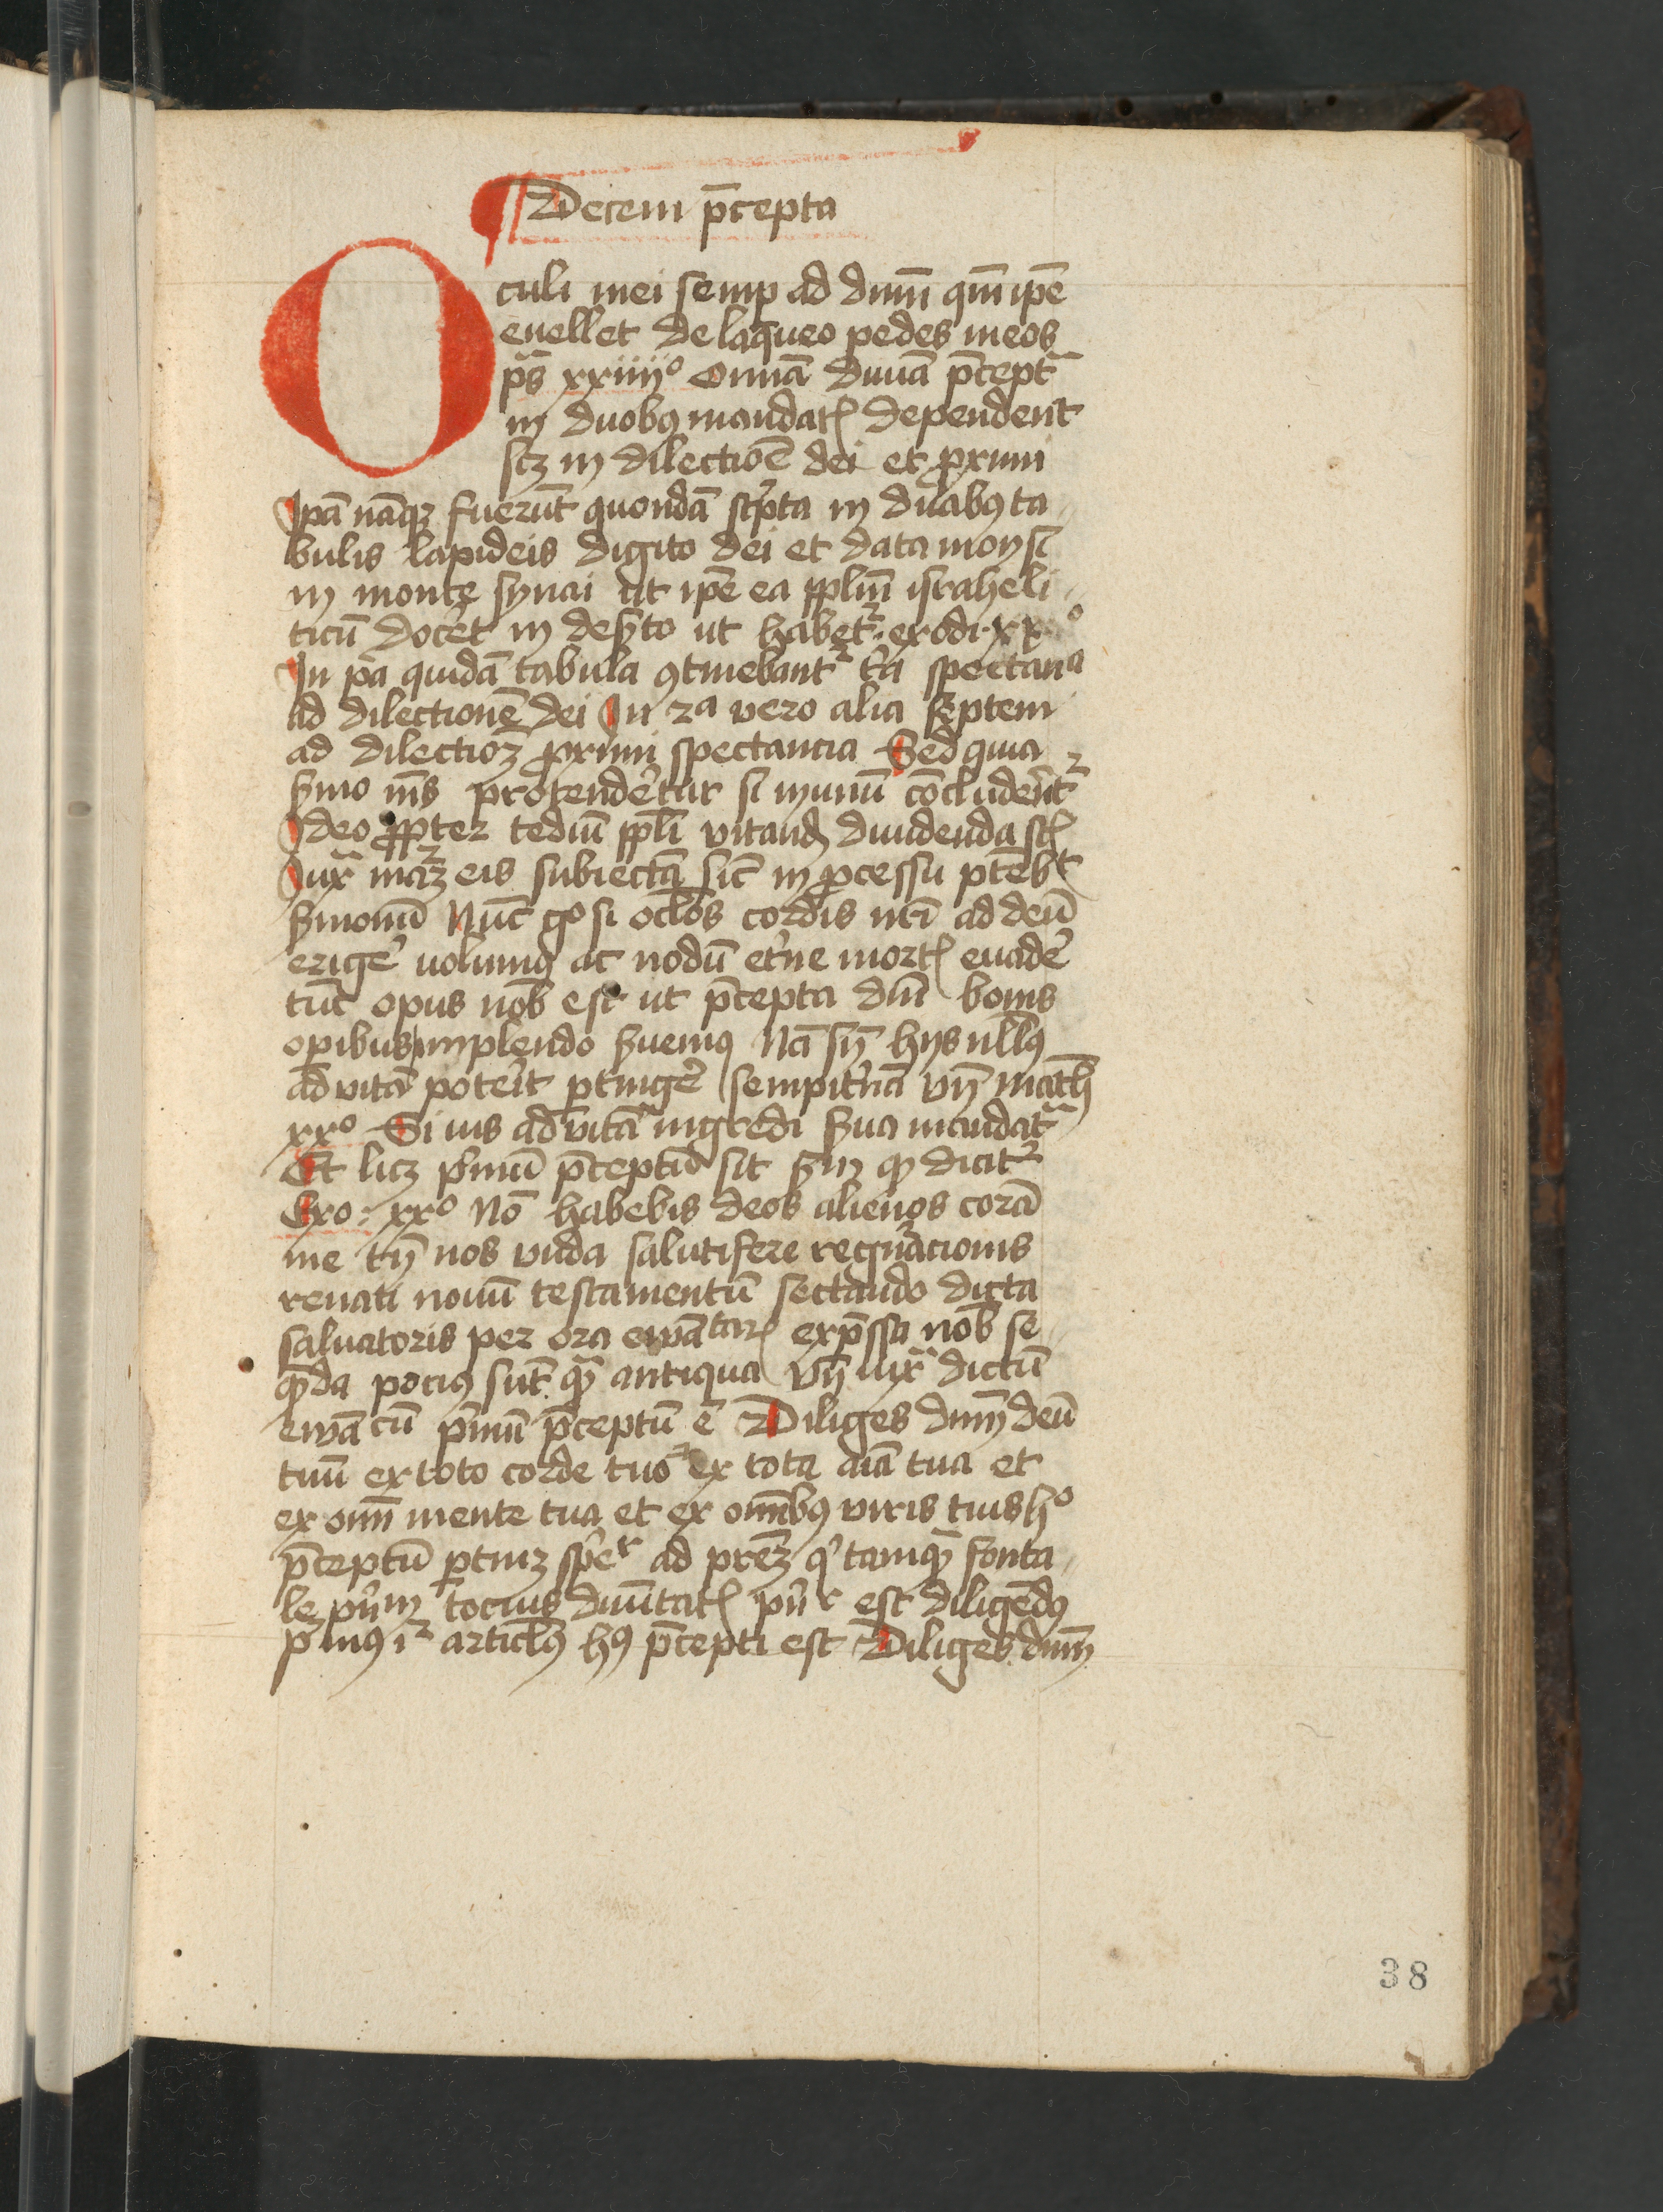 Decem p̄cepta
Oculi mei semp ad dnm̄ qm̄ ip̄e
euellet de laqueo pedes meos
pˢ xxiiiiº Omīa diuīa p̄cepta
in duobꝰ mandatꝭ dependent
scꝫ in dilectiōe dei et ꝓximi
Ip̄a nāqꝫ fuerūt quondā scͥpta in duabꝰ ta
bulis lapideis digito dei et data moysi
in monte synai ut ip̄e ea pplm̄ israheli
ticū doc̄et in deẜto ut habetᷣ exodi xxº
In pͣa quidā tabula ꝯtinebantᷣ tͥa spectancͣ
ad dilectionē dei In 2ª vero alia septem
ad dilectioꝫ ꝓximi spectancia Sed quia
ẜmo nīs protendēetur si in unū cōcludēentᷣ
Ideo ꝓpter tediū ppli vitand diuidenda sͭ
Iuxͣ maᷣꝫ eis subiectā sic in ꝓcessu ptebit
ẜmonū Nūc gº si oclōs cordis nr̄i ad deū
erigē volumꝰ ac nodū etͤne mortꝭ euadē
tūc opus nob̄ est ut p̄cepta dīu bonis
opibus implendo ẜuemꝰ Nā sn̄ hijs nllꝰ
ad vitā poterit ꝑtingē sempitͤnā Vn̄ math
xxº Si uis ad vitā ingredi ẜua mandata
Et licꝫ pͥmū p̄ceptū sit ẜm qd dicitᷣ
Exo xxº Nō habebis deos alienos corā
me tn̄ nos vnda salutifere regnͣacionis
renati nouū testamentū sectando dicta
saluatoris per ora ewātarꝭ exp̄ssa nob̄ se
qnda pociꝰ sūt qͣ antiqua Vn̄ iuxͣ dictū
ewācū pͥmū p̄ceptū ē Diliges dnm̄ deū
tuū ex toto corde tuo ⁊ ex tota aīa tua et
ex om̄i mente tua et ex om̄ibꝰ viris tuis hº
p̄ceptū ꝑtinꝫ spēr ad prēꝫ qͥ tamqͣ fonta
le pͥnm̄ tocius diuītatꝭ pͥnr est diligēdꝰ
Pͥmꝰ iᷣ articlꝰ hꝰ p̄cepti est Diliges dnm̄
38